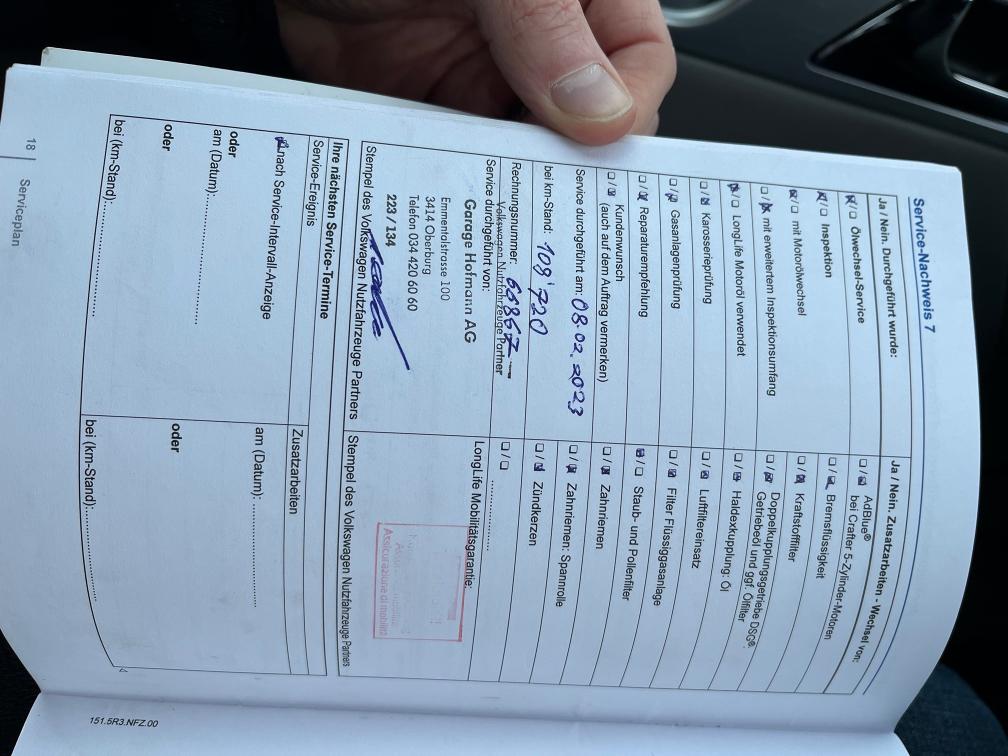 Service-Nachweis 7
Ja / Nein. Durchgeführt wurde:
☒/☐ Ölwechsel-Service
☒/☐ Inspektion
☒/☐ mit Motorölwechsel
☐/☒ mit erweitertem Inspektionsumfang
☒/☐ LongLife Motoröl verwendet
☐/☒ Karosserieprüfung
☐/☒ Gasanlagenprüfung
☐/☒ Reparaturempfehlung
☐/☒ Kundenwunsch
(auch auf dem Auftrag vermerken)
Service durchgeführt am: 08.02.2023
bei km-Stand: 108'720
Rechnungsnummer: 66867
Volkswagen Nutzfahrzeuge Partner
Service durchgeführt von:
Garage Hofmann AG
Emmentalstrasse 100
3414 Oberburg
Telefon 034 420 60 60
223 / 134
Stempel des Volkswagen Nutzfahrzeuge Partners
Ja / Nein. Zusatzarbeiten - Wechsel von:
☐/☒ AdBlue®
bei Crafter 5-Zylinder-Motoren
☐/☒ Bremsflüssigkeit
☐/☒ Kraftstofffilter
☐/☒ Doppelkupplungsgetriebe DSG®:
Getriebeöl und ggf. Ölfilter
☐/☒ Haldexkupplung: Öl
☐/☒ Luftfiltereinsatz
☐/☒ Filter Flüssiggasanlage
☒/☐ Staub- und Pollenfilter
☐/☒ Zahnriemen
☐/☒ Zahnriemen: Spannrolle
☐/☒ Zündkerzen
☐/☐ ..................
LongLife Mobilitätsgarantie:
Assicurazione di mobilità
Stempel des Volkswagen Nutzfahrzeuge Partners
Ihre nächsten Service-Termine
Service-Ereignis
☒ nach Service-Intervall-Anzeige
oder
am (Datum):..........................
oder
bei (km-Stand):......................
Zusatzarbeiten
am (Datum): ......................
oder
bei (km-Stand):......................
18 | Serviceplan
151.5R3.NFZ.00